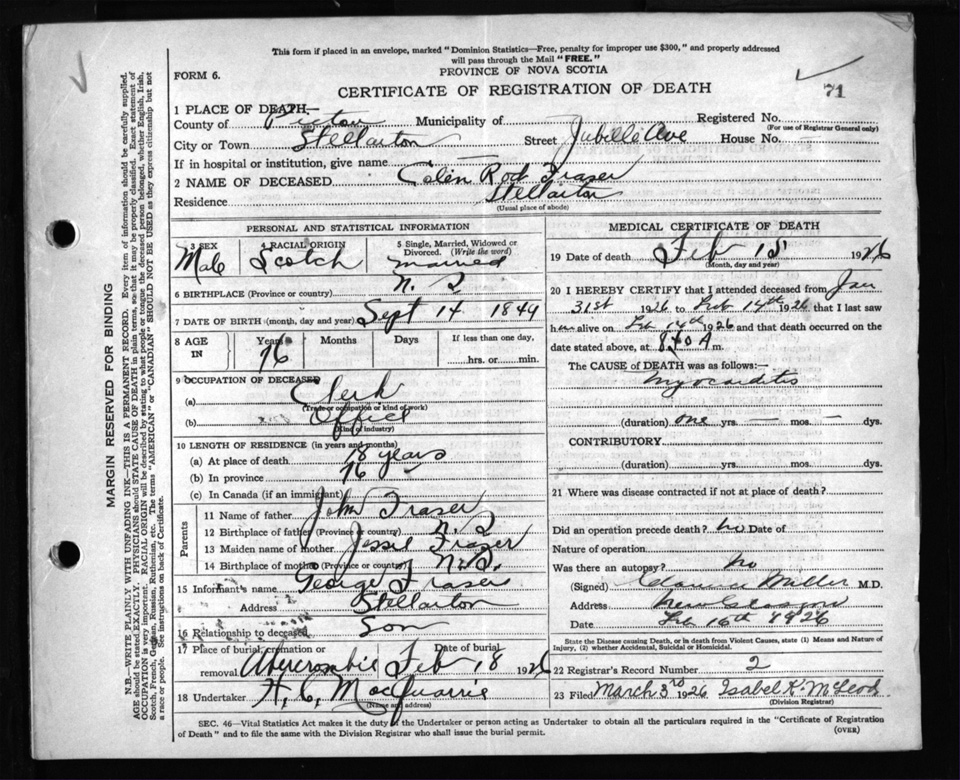 This form if placed in an envelope, marked "Dominion Statistics—Free, penalty for improper use $300," and properly addressed
will pass through the Mail "FREE."
FORM 6.
PROVINCE OF NOVA SCOTIA
CERTIFICATE OF REGISTRATION OF DEATH
71
1 PLACE OF DEATH—
County of Pictou Municipality of — Registered No.
(For use of Registrar General only)
City or Town Stellarton Street Jubille Ave House No. —
If in hospital or institution, give name —
2 NAME OF DECEASED Colen Rod Fraser
Residence Stellarton
(Usual place of abode)
PERSONAL AND STATISTICAL INFORMATION
3 SEX 4 RACIAL ORIGIN 5 Single, Married, Widowed or Divorced. (Write the word)
Male Scotch married
6 BIRTHPLACE (Province or country) N. S
7 DATE OF BIRTH (month, day and year) Sept 14 1849
8 AGE IN Years Months Days If less than one day,
76 hrs. or min.
9 OCCUPATION OF DECEASED
(a) Clerk
(Trade or occupation or kind of work)
(b) Office
(Kind of industry)
10 LENGTH OF RESIDENCE (in years and months)
(a) At place of death 18 years
(b) In province 76
(c) In Canada (if an immigrant)
Parents
11 Name of father John Fraser
12 Birthplace of father (Province or country) N. S
13 Maiden name of mother Jessie Fraser
14 Birthplace of mother (Province or country) N. S.
15 Informant's name George Fraser
Address Stellarton
16 Relationship to deceased Son
17 Place of burial, cremation or removal Abercrombie Date of burial Feb 18 1926
18 Undertaker H. C. MacQuarrie
(Name and address)
MEDICAL CERTIFICATE OF DEATH
19 Date of death Feb 15 1926
(Month, day and year)
20 I HEREBY CERTIFY that I attended deceased from Jan
31st 1926 to Feb 14th 1926 that I last saw
him alive on Feb 14th 1926 and that death occurred on the
date stated above, at A m.
The CAUSE of DEATH was as follows:—
Myocarditis
(duration) one yrs. — mos. — dys.
CONTRIBUTORY
(duration) yrs. mos. dys.
21 Where was disease contracted if not at place of death?
Did an operation precede death? no Date of
Nature of operation
Was there an autopsy? no
(Signed) Clarence Miller M.D.
Address New Glasgow
Date Feb 16th 1926
State the Disease causing Death, or in death from Violent Causes, state (1) Means and Nature of
Injury, (2) whether Accidental, Suicidal or Homicidal.
22 Registrar's Record Number 2
23 Filed March 3rd 1926 Isabel K. McLeod
(Division Registrar)
SEC. 46—Vital Statistics Act makes it the duty of the Undertaker or person acting as Undertaker to obtain all the particulars required in the "Certificate of Registration
of Death" and to file the same with the Division Registrar who shall issue the burial permit.
(OVER)
MARGIN RESERVED FOR BINDING
N.B.—WRITE PLAINLY WITH UNFADING INK—THIS IS A PERMANENT RECORD. Every item of information should be carefully supplied.
AGE should be stated EXACTLY. PHYSICIANS should STATE CAUSE OF DEATH in plain terms, so that it may be properly classified. Exact statement of
OCCUPATION is very important. RACIAL ORIGIN will be described by stating to what people or tongue the deceased person belonged, whether English, Irish,
Scotch, French, German, Russian, Ruthenian, etc. The terms "AMERICAN" or "CANADIAN" SHOULD NOT BE USED as they express citizenship but not
a race or people. See instructions on back of Certificate.